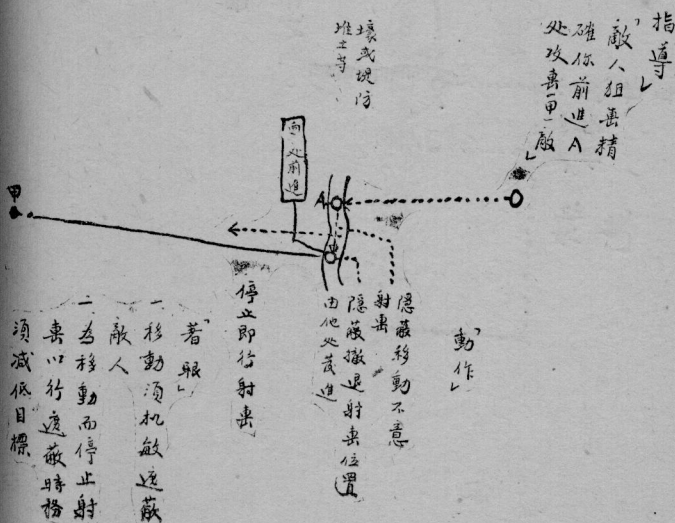 指導」
「敵人狙击精
確你前進A
处攻击甲敵
」
壕或堤防
堆土等
由处前進
甲
A
「動作」
隐蔽移動不意
射击
隐蔽撤退射击位置
由他处前進
停止即行射击
「著眼」
一移動須机敏遮蔽
敵人
二为移動而停止射
击以行遮蔽時務
須減低目標